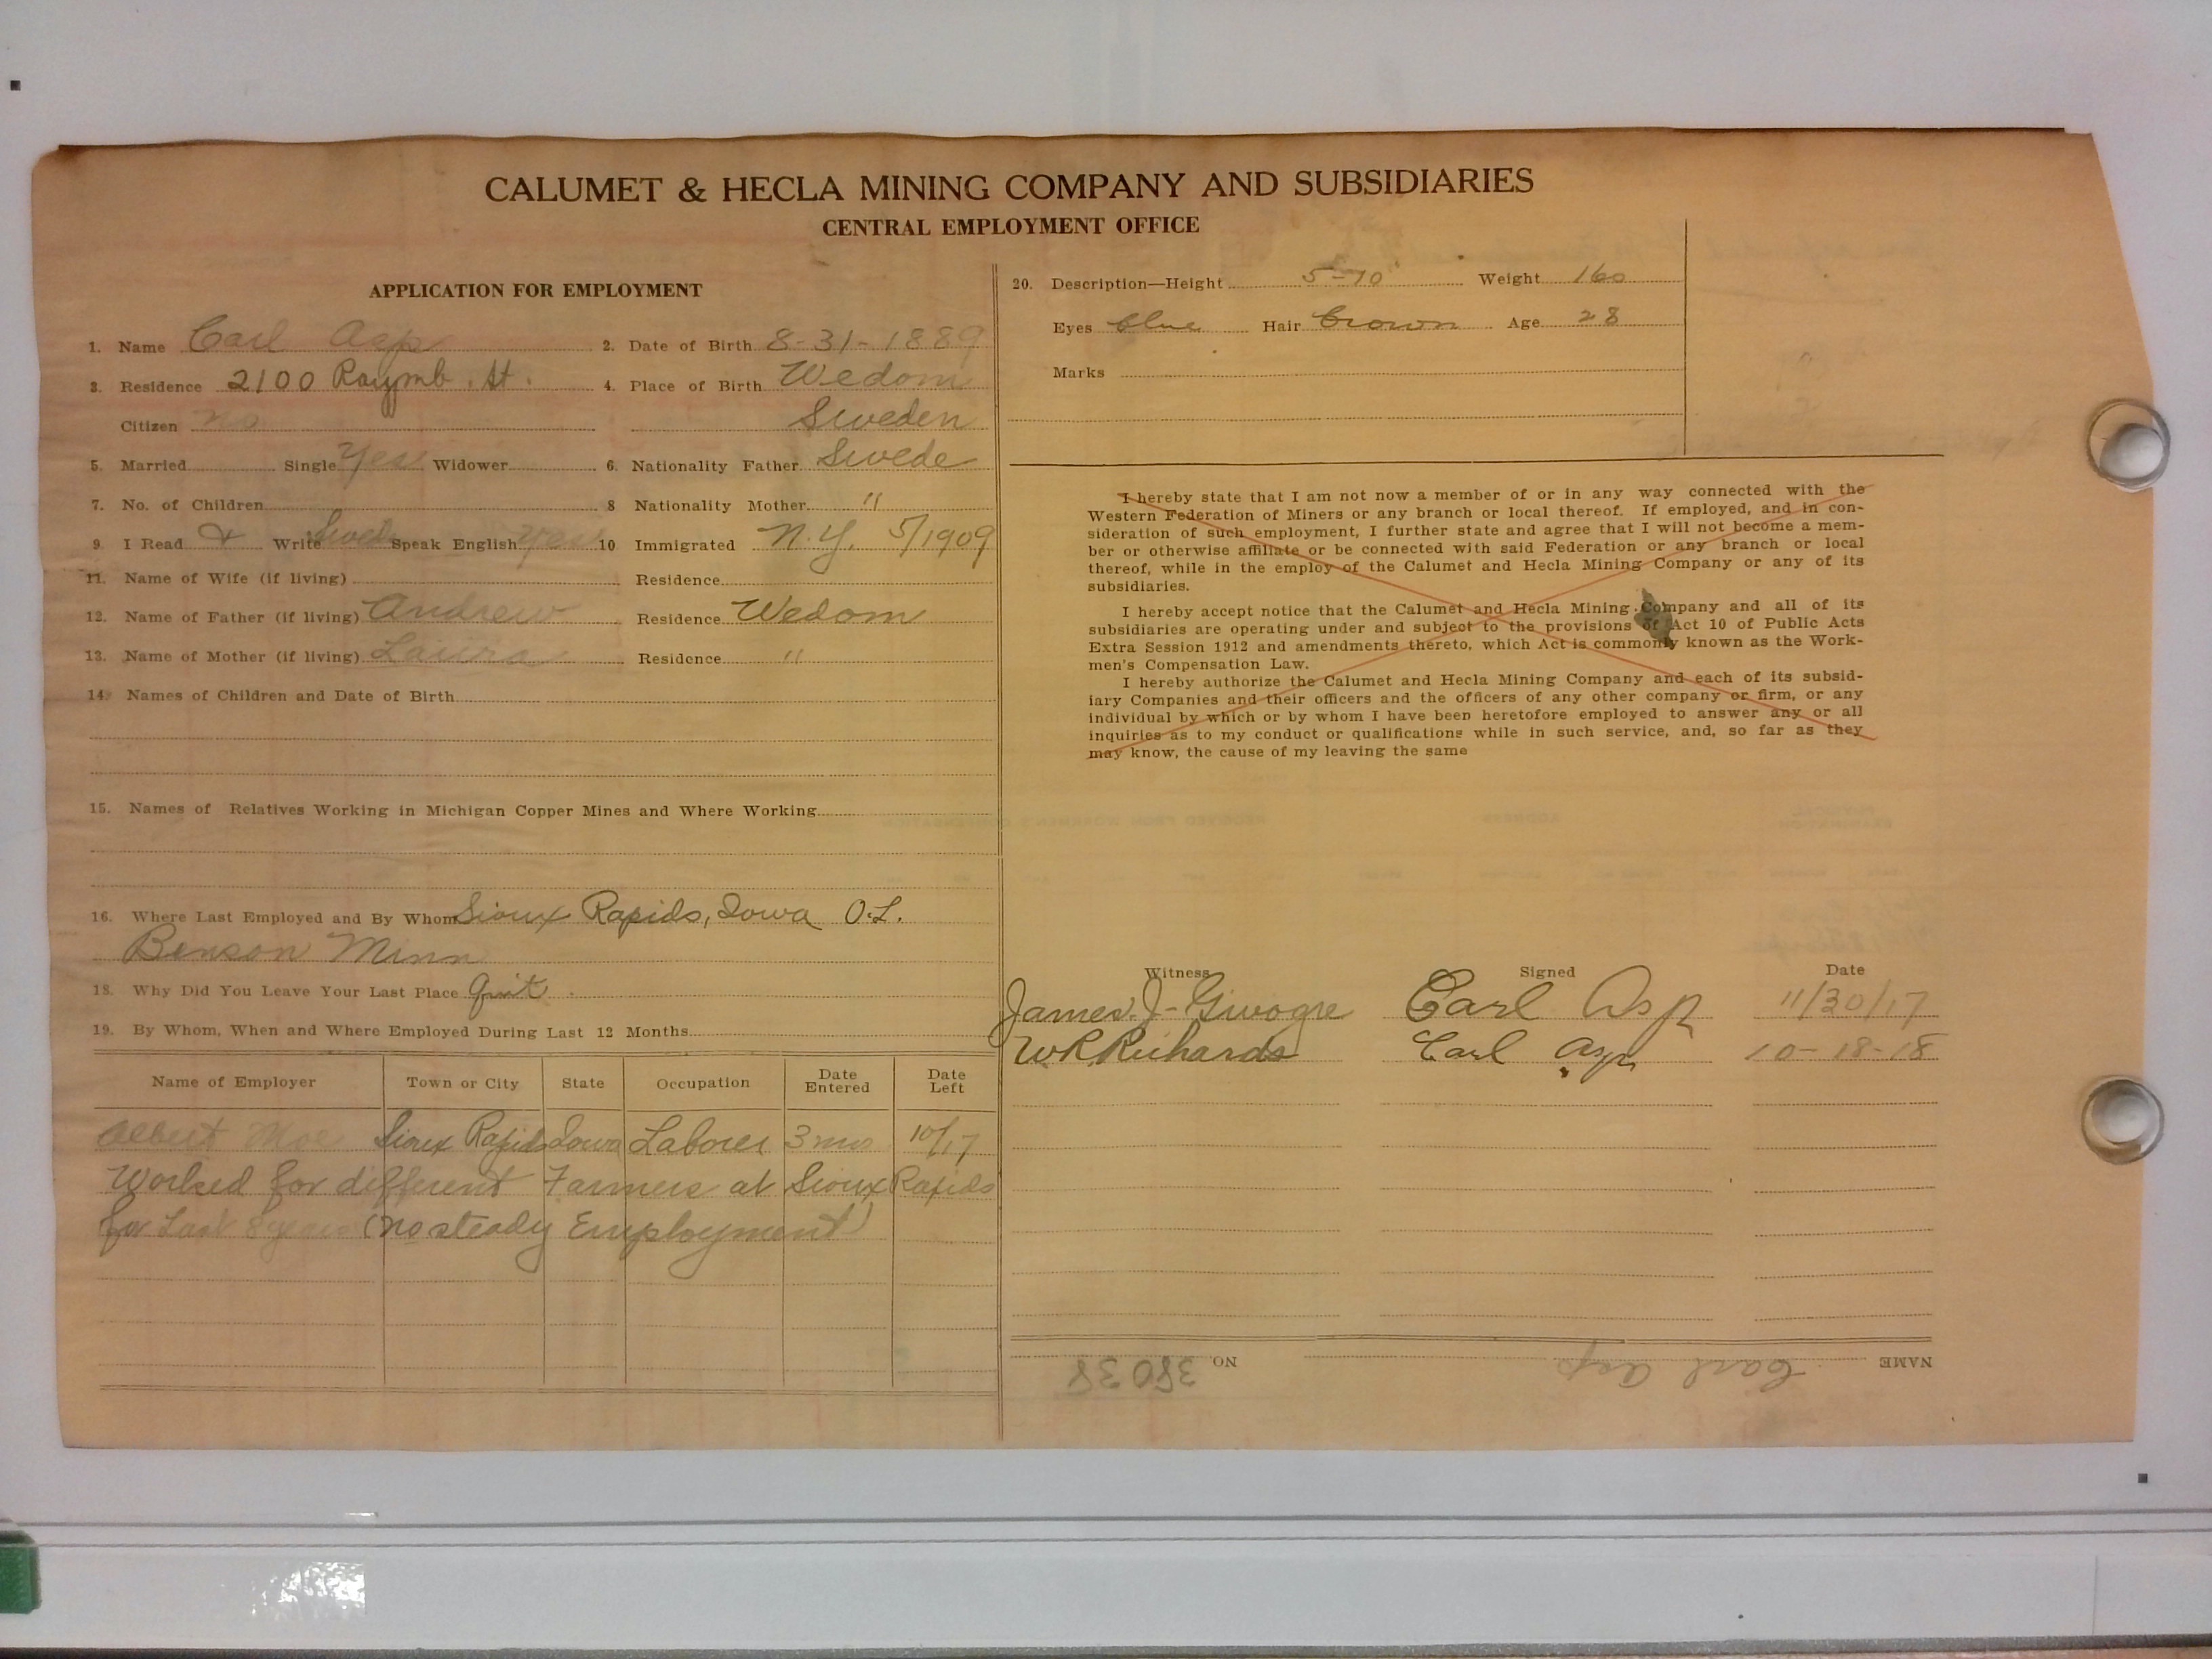 CALUMET & HECLA MINING COMPANY AND SUBSIDIARIES
CENTRAL EMPLOYMENT OFFICE
APPLICATION FOR EMPLOYMENT
1. Name Carl Asp 2. Date of Birth 8-31-1889
3. Residence 2100 Raymb. St. 4. Place of Birth Wedom
Citizen no Sweden
5. Married Single Yes Widower 6. Nationality Father Swede
7. No. of Children 8 Nationality Mother "
9. I Read & Write Swede Speak English Yes 10 Immigrated N.Y. 5/1909
11. Name of Wife (if living) Residence
12. Name of Father (if living) Andrew Residence Wedom
13. Name of Mother (if living) Laura Residence "
14. Names of Children and Date of Birth
15. Names of Relatives Working in Michigan Copper Mines and Where Working
16. Where Last Employed and By Whom Sioux Rapids, Iowa O.L.
Benson Minn
18. Why Did You Leave Your Last Place Quit
19. By Whom, When and Where Employed During Last 12 Months
Name of Employer Town or City State Occupation Date Entered Date Left
Albert Moe Sioux Rapids Iowa Laborer 3 mos 10/17
Worked for different Farmers at Sioux Rapids
for Last 8 years (no steady Employment)
20. Description—Height 5-10 Weight 160
Eyes blue Hair brown Age 28
Marks
I hereby state that I am not now a member of or in any way connected with the
Western Federation of Miners or any branch or local thereof. If employed, and in con-
sideration of such employment, I further state and agree that I will not become a mem-
ber or otherwise affiliate or be connected with said Federation or any branch or local
thereof, while in the employ of the Calumet and Hecla Mining Company or any of its
subsidiaries.
I hereby accept notice that the Calumet and Hecla Mining Company and all of its
subsidiaries are operating under and subject to the provisions of Act 10 of Public Acts
Extra Session 1912 and amendments thereto, which Act is commonly known as the Work-
men's Compensation Law.
I hereby authorize the Calumet and Hecla Mining Company and each of its subsid-
iary Companies and their officers and the officers of any other company or firm, or any
individual by which or by whom I have been heretofore employed to answer any or all
inquiries as to my conduct or qualifications while in such service, and, so far as they
may know, the cause of my leaving the same
Witness Signed Date
James J. Carl Asp 11/30/17
W.R. Richards Carl Asp 10-18-18
NAME Carl Asp NO. 38038